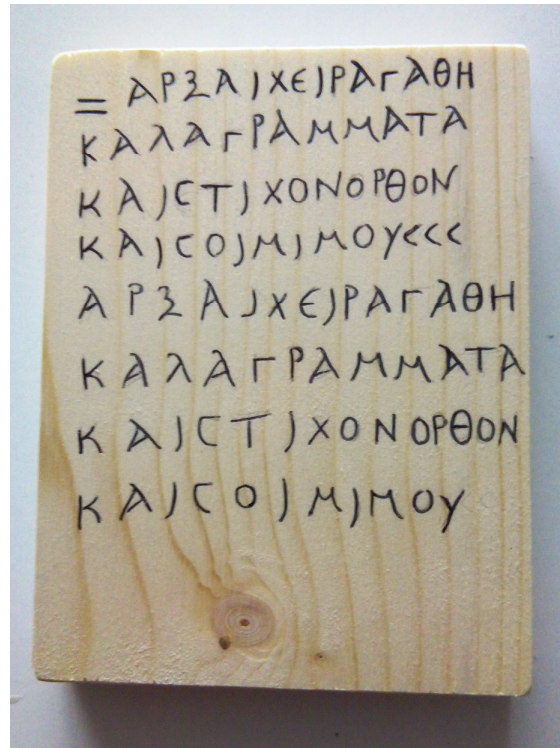 = ΑΡΞΑΙΧΕΙΡΑΓΑΘΗ
ΚΑΛΑΓΡΑΜΜΑΤΑ
ΚΑΙϹΤΙΧΟΝΟΡΘΟΝ
ΚΑΙϹΟΙΜΙΜΟΥ<<<
ΑΡΞΑΙΧΕΙΡΑΓΑΘΗ
ΚΑΛΑΓΡΑΜΜΑΤΑ
ΚΑΙϹΤΙΧΟΝΟΡΘΟΝ
ΚΑΙϹΟΙΜΙΜΟΥ